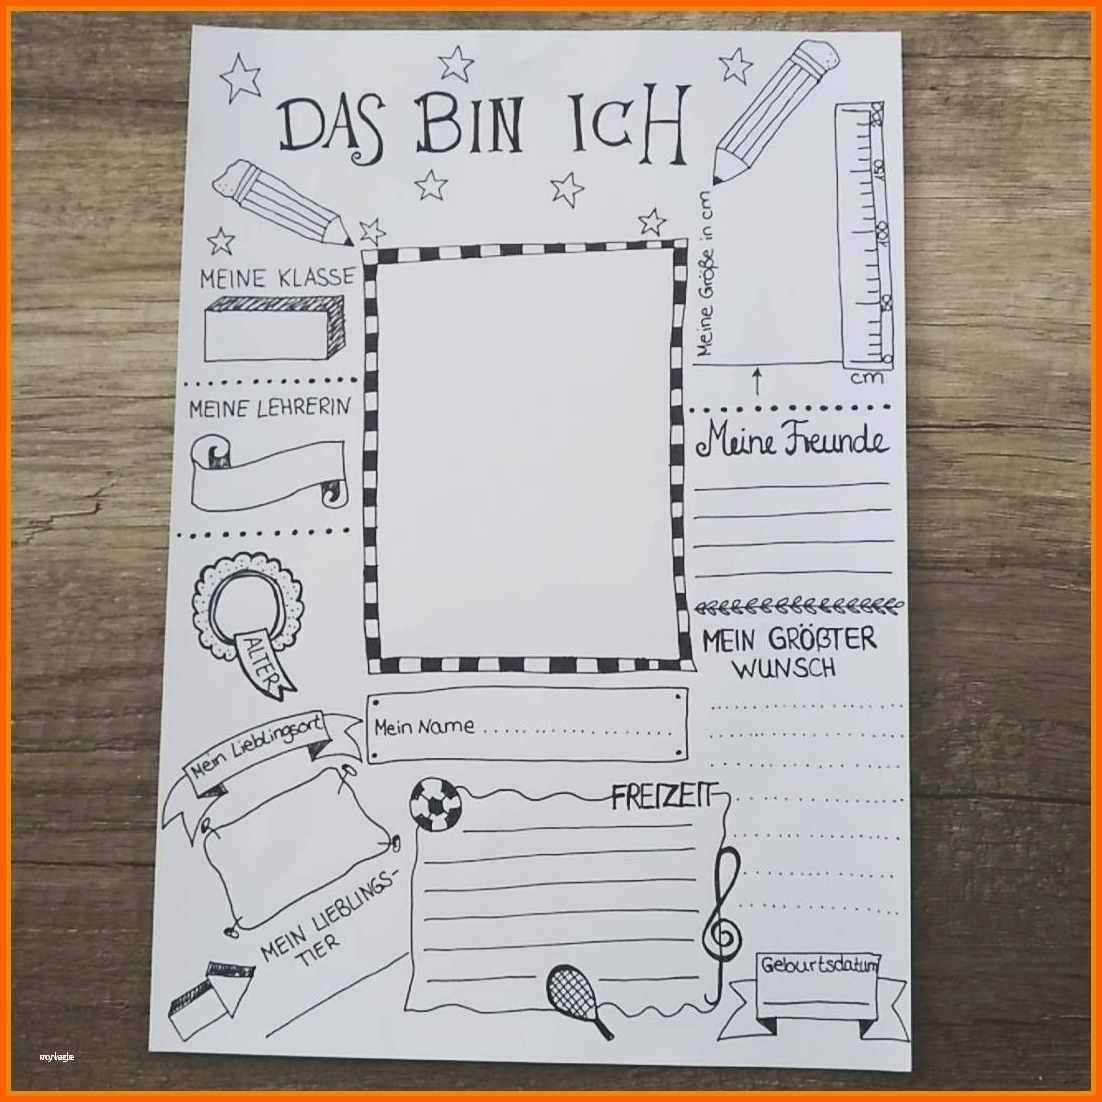 DAS BIN ICH
MEINE KLASSE
MEINE LEHRERIN
ALTER
Mein Lieblingsort
MEIN LIEBLINGS-
TIER
Mein Name
Meine Größe in cm
200
150
100
50
0
cm
Meine Freunde
MEIN GRÖẞTER
WUNSCH
FREIZEIT
Geburtsdatum